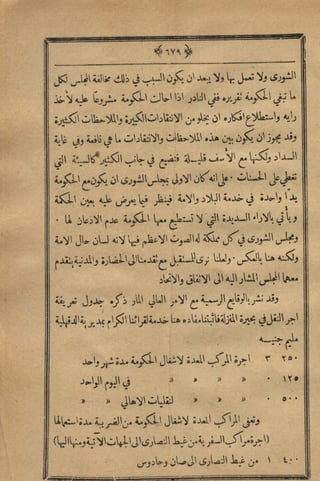 ﴿ ٦٧٩ ﴾
الشورى ولا تعمل بها ولا يبعد ان يكون السبب في ذلك مخالفة المجلس لكل
ما تبغي الحكومة تقريره ففي النادر اذا احالت الحكومة مشروعًا عليه لأخذ
رايه واستطلاع افكاره ان يخلو من الانتقادات الكبيرة والملاحظات الكثيرة
وقد يجوز ان يكون بين هذه الملاحظات والانتقادات ما هي نافعة وفي غاية
السداد ولكنها مع الأسف قليلة فتضيع في جانب الكثير كالسيئة التي
تغطي على الحسنات . على انه كان الاولى بمجلس الشورى ان يكون مع الحكومة
يدًا واحدة في خدمة البلاد والامة فينظر فيما يعرض عليه بعين الحكمة
ويأتي بالاراء السديدة التي لا تستطيع معها الحكومة عدم الاذعان لها .
ومجلس الشورى في كل مملكة له الصوت الاعظم فيها لانه لسان حال الامة
ولكنه هنا بالعكس . ولعلنا نرى للمستقبل مع تقدمنا الى الحضارة والمدنية يتقدم
معهما المجلس المشار اليه الى الاتفاق والاتحاد
وقد نشر بالوقايع الرسمية مع الامر العالي المار ذكره جدول تعريفة
اجر النقل في بحيرة المنزلة فاثبتناه مفاده هنا خدمة لقرائنا الكرام بمديرية الدقهلية
مليم جنيه
٢٥٠ ٣ اجرة المركب المعدة لاشغال الحكومة مدة شهر واحد
١٢٥ ٠ » » » » في اليوم الواحد
٥٠٠ ٠ » » » لنقليات الاهالي » »
وتعفى المراكب المعدة لاشغال الحكومة من الضريبة مدة استعمالها
(اجرة مراكب السفرية من غيط النصارى الى الجهات الآتية ومنها اليها)
٤٠٠ ١ من غيط النصارى الى صان وحادوس